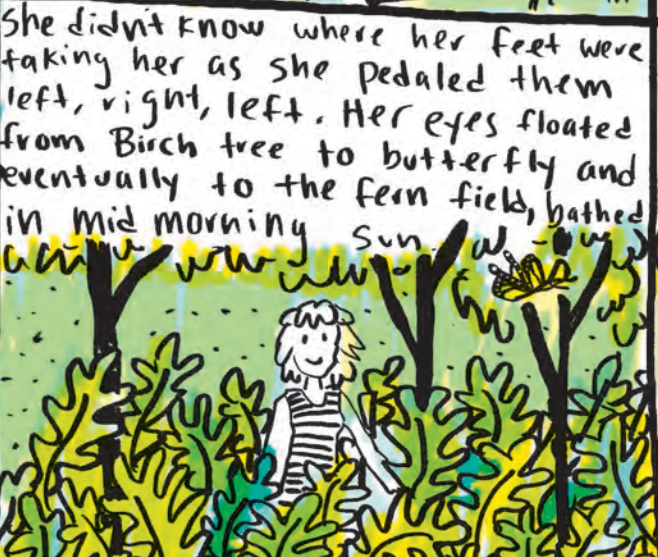 She didn't know where her feet were
taking her as she pedaled them
left, right, left. Her eyes floated
from Birch tree to butterfly and
eventually to the fern field, bathed
in mid morning sun.